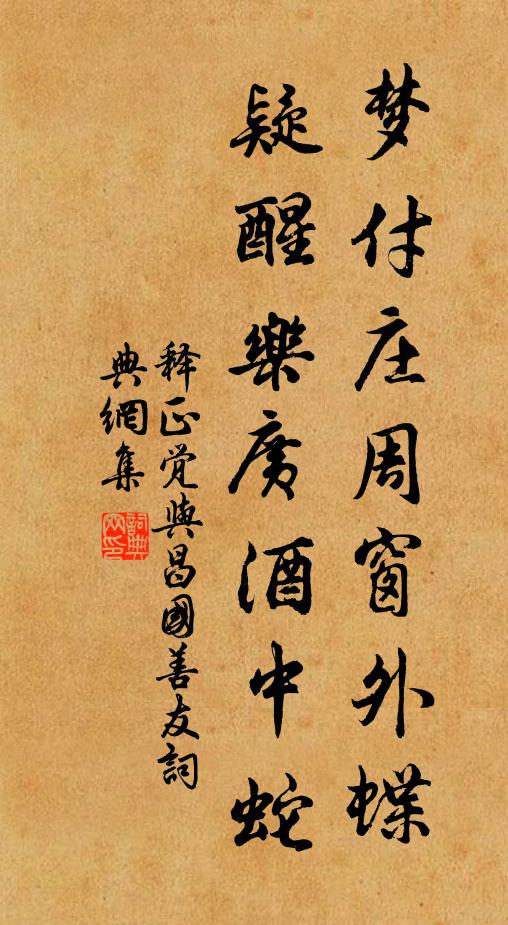 梦付庄周窗外蝶
疑醒樂廣酒中蛇
释正觉與昌國善友詞
典網集
詞典
网印